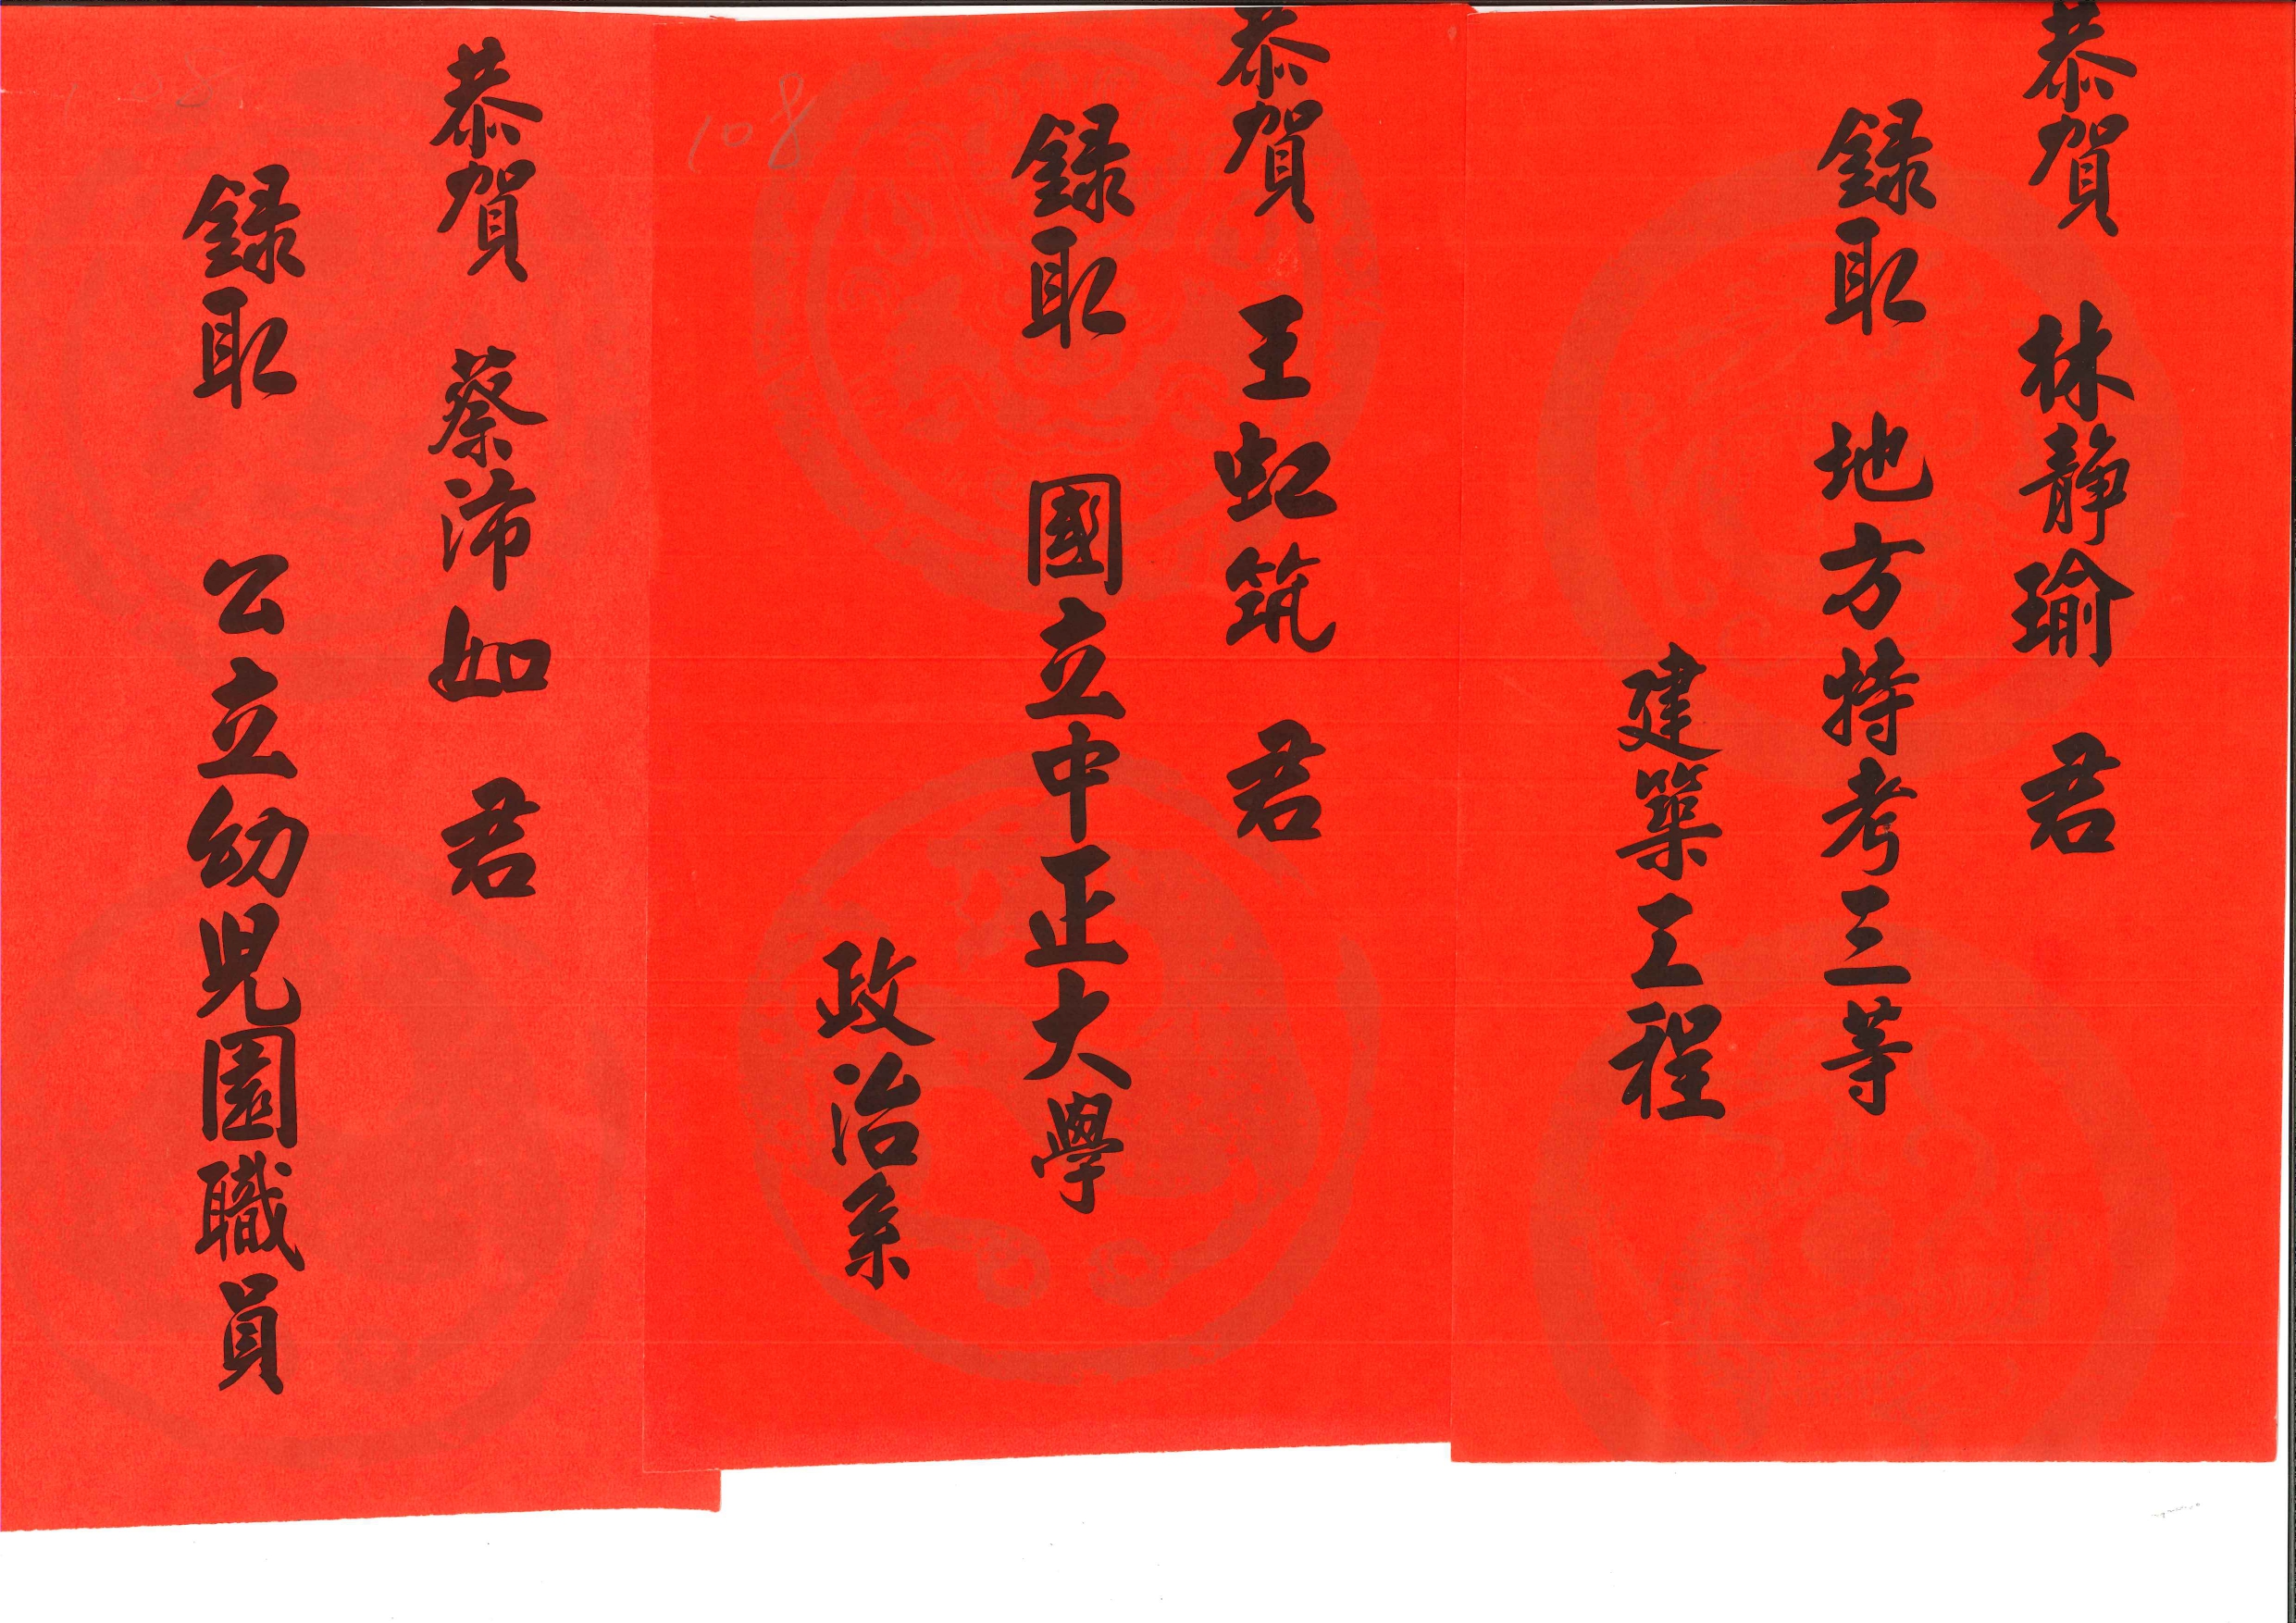 恭賀 林靜瑜 君
錄取 地方特考三等
建築工程
恭賀 王虹筑 君
錄取 國立中正大學
政治系
108
恭賀 蔡沛如 君
錄取 公立幼兒園職員